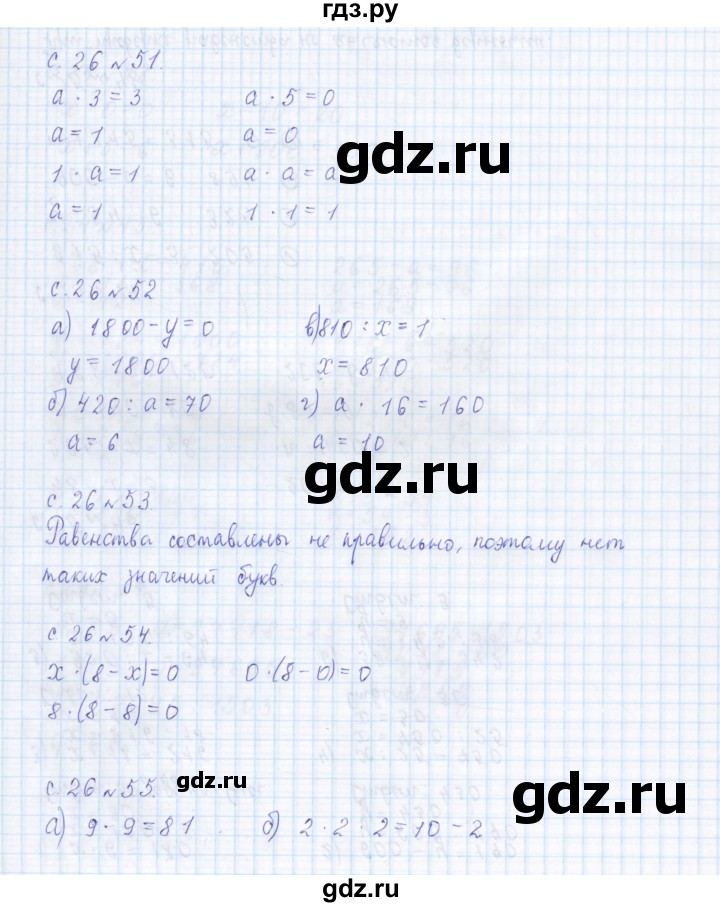 гдз.ру
с. 26 №51.
а · 3 = 3 а · 5 = 0
а = 1 а = 0
1 · а = 1 а · а = а
а = 1 1 · 1 = 1
gdz.ru
с. 26 №52
а) 1800 - у = 0 в) 810 : х = 1
у = 1800 х = 810
б) 420 : а = 70 г) а · 16 = 160
а = 6 а = 10
gdz.ru
с. 26 №53.
Равенства составлены не правильно, поэтому нет
таких значений букв.
с 26 №54.
х · (8 - х) = 0 0 · (8 - 0) = 0
8 · (8 - 8) = 0
gdz.ru
gdz.ru
с. 26 №55.
а) 9 · 9 = 81 б) 2 · 2 · 2 = 10 - 2
gdz.ru